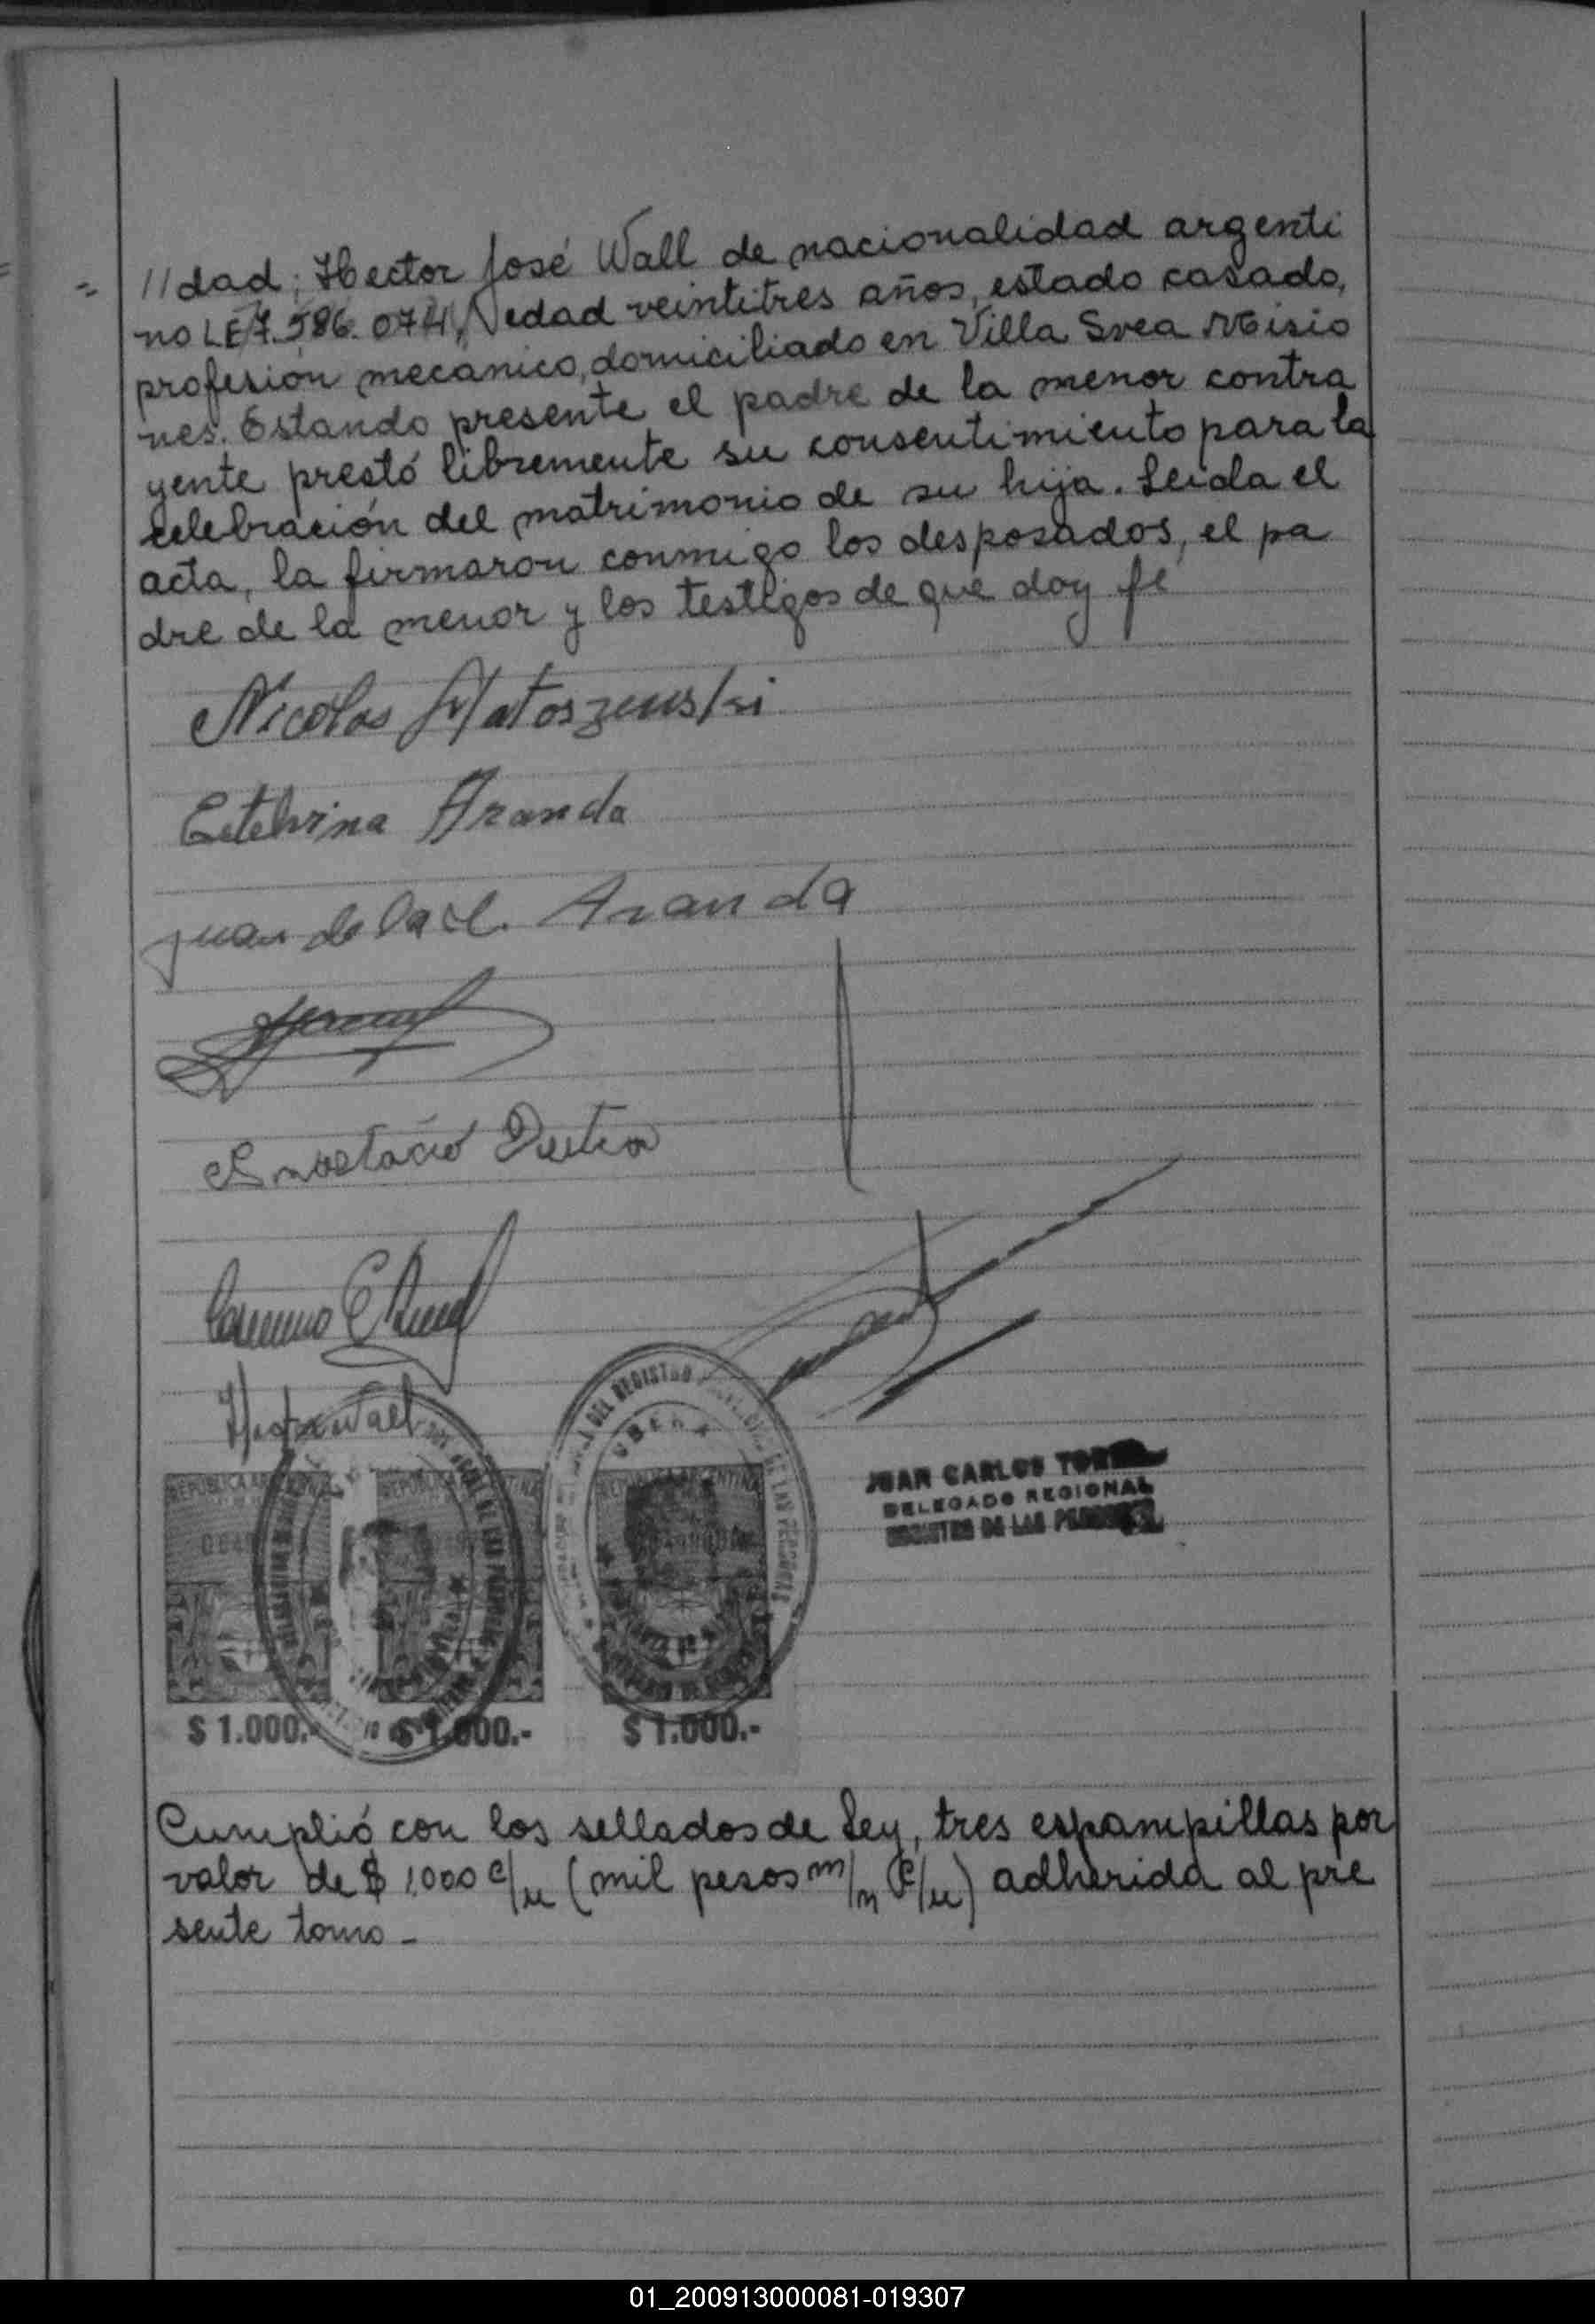 //dad; Hector José Wall de nacionalidad argenti
no LE 7.586.074, edad veintitres años, estado casado,
profesión mecánico, domiciliado en Villa Svea Misio
nes. Estando presente el padre de la menor contra
yente prestó libremente su consentimiento para la
celebración del matrimonio de su hija. Leida el
acta, la firmaron conmigo los desposados, el pa
dre de la menor y los testigos de que doy fé
Nicolas Matoszewski
Etelvina Aranda
Juan de la C. Aranda
Anastacio
Hector Wall
DEL REGISTRO DE LAS PERSONAS
OBERA
REPUBLICA ARGENTINA
REPUBLICA ARGENTINA
REPUBLICA ARGENTINA
JUAN CARLOS
DELEGADO REGIONAL
REGISTRO DE LAS PERSONAS
$ 1.000.-
$ 1.000.-
$ 1.000.-
Cumplió con los sellados de Ley, tres espampillas por
valor de $ 1.000 c/u (mil pesos m/n c/u) adherida al pre
sente tomo -
01_200913000081-019307